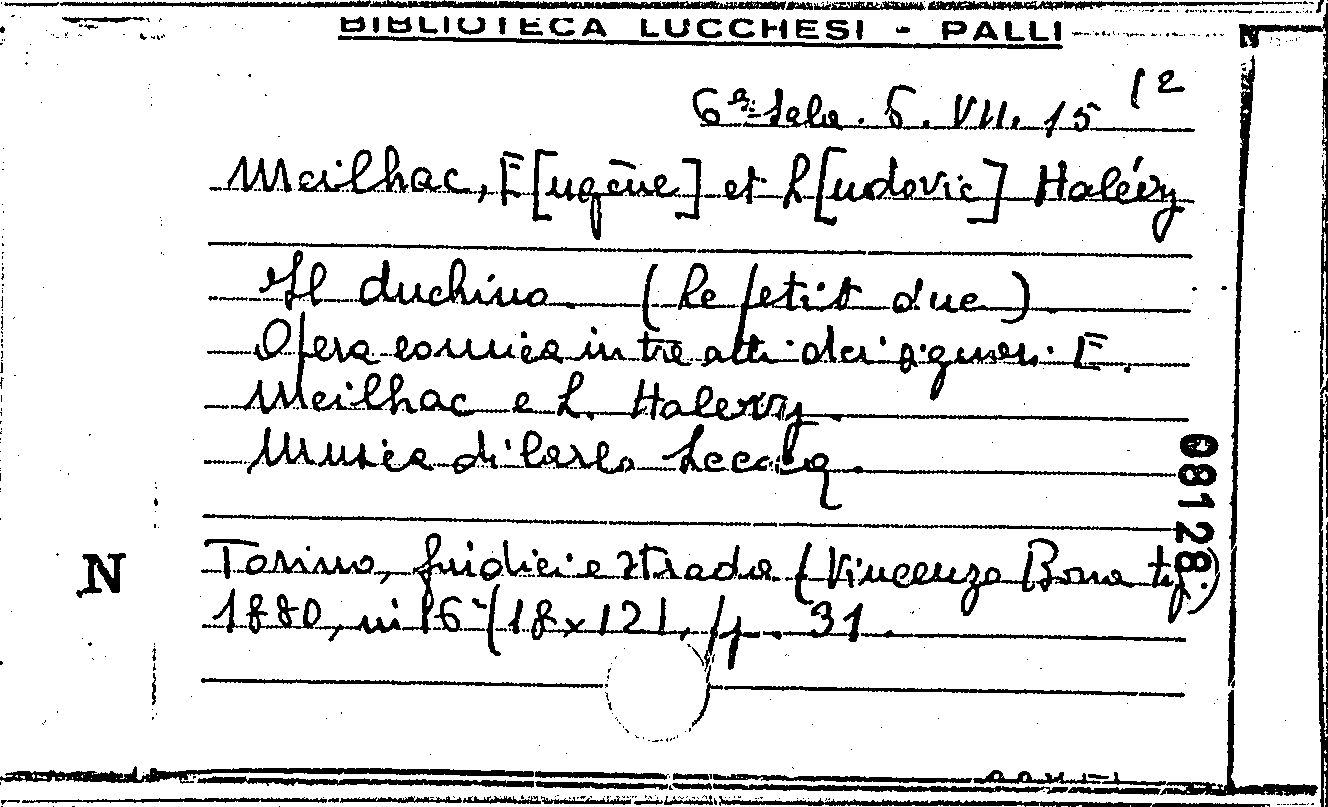 BIBLIOTECA LUCCHESI - PALLI
N
6ª Sala. 6. VII. 15 12
Meilhac, E[ugène] et L[udovic] Halévy
Il duchino. (Le petit duc).
Opera comica in tre atti dei signori E.
Meilhac e L. Halevy.
Musica di Carlo Lecocq.
08128
N
Torino, Giudici e Strada (Vincenzo Bona tip.)
1880, in 16° (18x12), pp. 31.